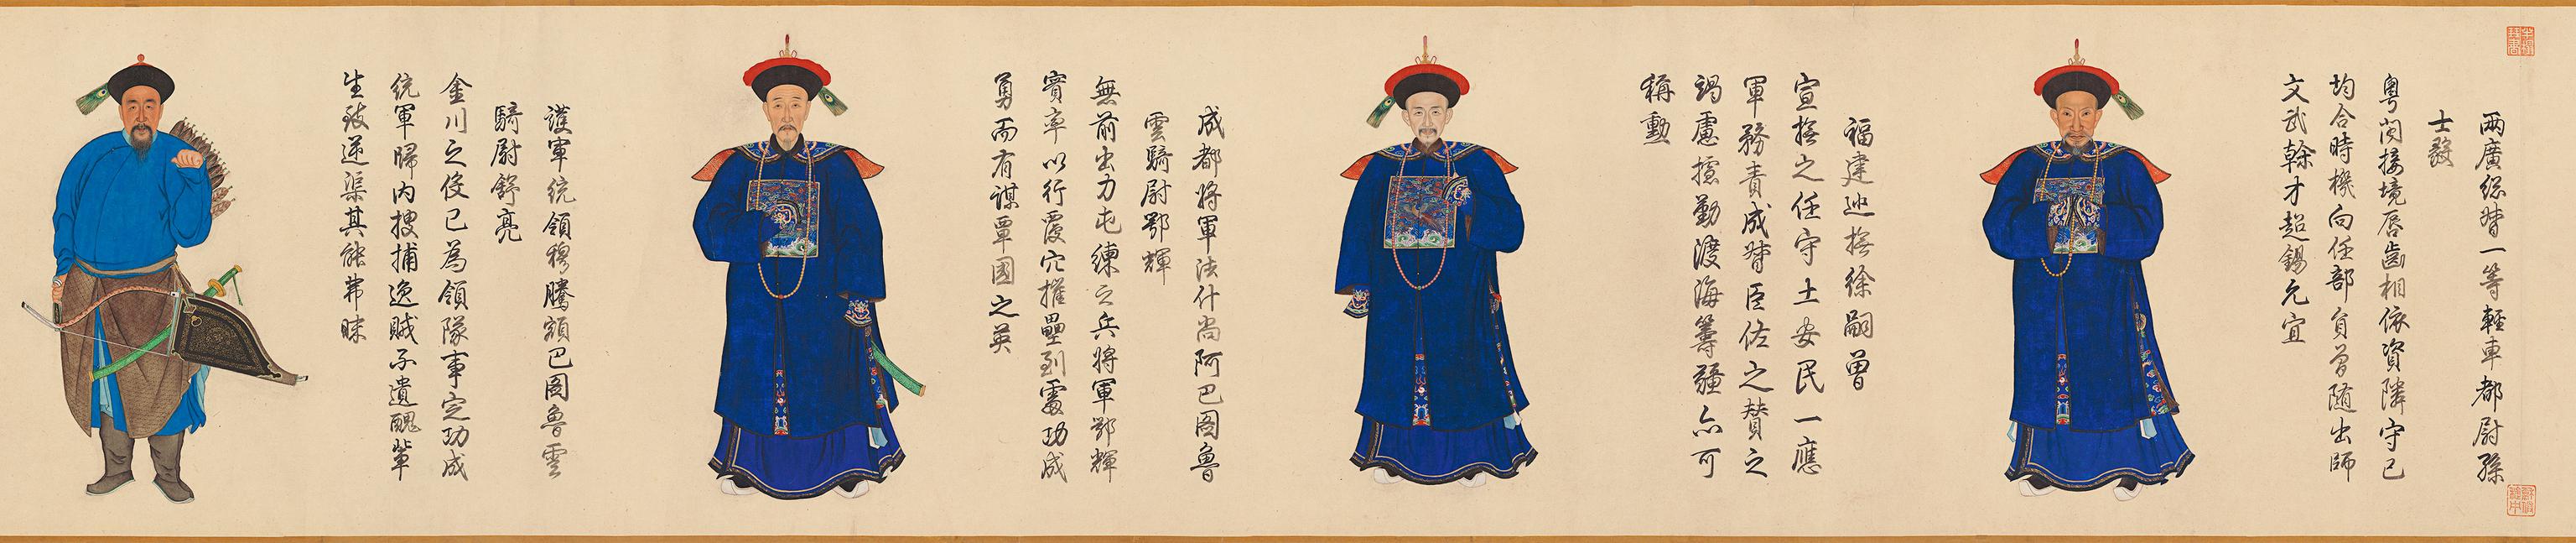 兩廣總督一等輕車都尉孫
士毅
粵閩接境唇齒相依資隣守已
均合時機向任部負曾隨出師
文武幹才超錫允宜
福建巡撫徐嗣曾
宣撫之任守土安民一應
軍務責成督臣佐之贊之
竭慮攄勤渡海籌疆亦可
稱勳
成都將軍法什尚阿巴圖魯
雲騎尉鄂輝
無前出力屯練之兵將軍鄂輝
實率以行覆穴摧壘到處功成
勇而有謀蕈國之英
護軍統領穆騰額巴圖魯雲
騎尉舒亮
金川之役已為領隊事定功成
統軍歸內搜捕逸賊孑遺醜輩
生致逆渠其能茀昧